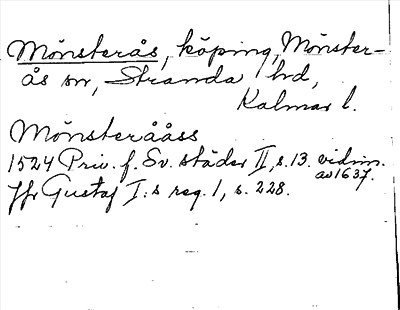 Mönsterås, köping, Mönster-
ås sn, Stranda hd,
Kalmar l.
Mönsterååss
1524 Priv. f. Sv. städer II, s. 13. vidim.
av 1637.
Jfr Gustaf I:s reg. 1, s. 228.